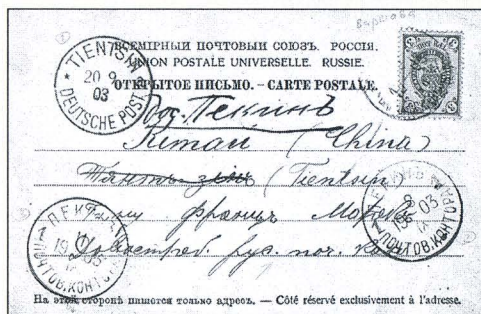 Варшава
ВСЕМІРНЫЙ ПОЧТОВЫЙ СОЮЗЪ. РОССІЯ.
UNION POSTALE UNIVERSELLE. RUSSIE.
ОТКРЫТОЕ ПИСЬМО. – CARTE POSTALE.
TIENTSIN
20 9
03
DEUTSCHE POST
Пекинъ
Китай (China)
(Tientsin)
франц
рус. поч.
ПЕКИНЪ
19
IX 03
ПОЧТОВ. КОНТОРА
ПЕКИНЪ
19 03
IX
ПОЧТОВ. КОНТОРА
На этой сторонѣ пишется только адресъ. — Côté réservé exclusivement à l'adresse.